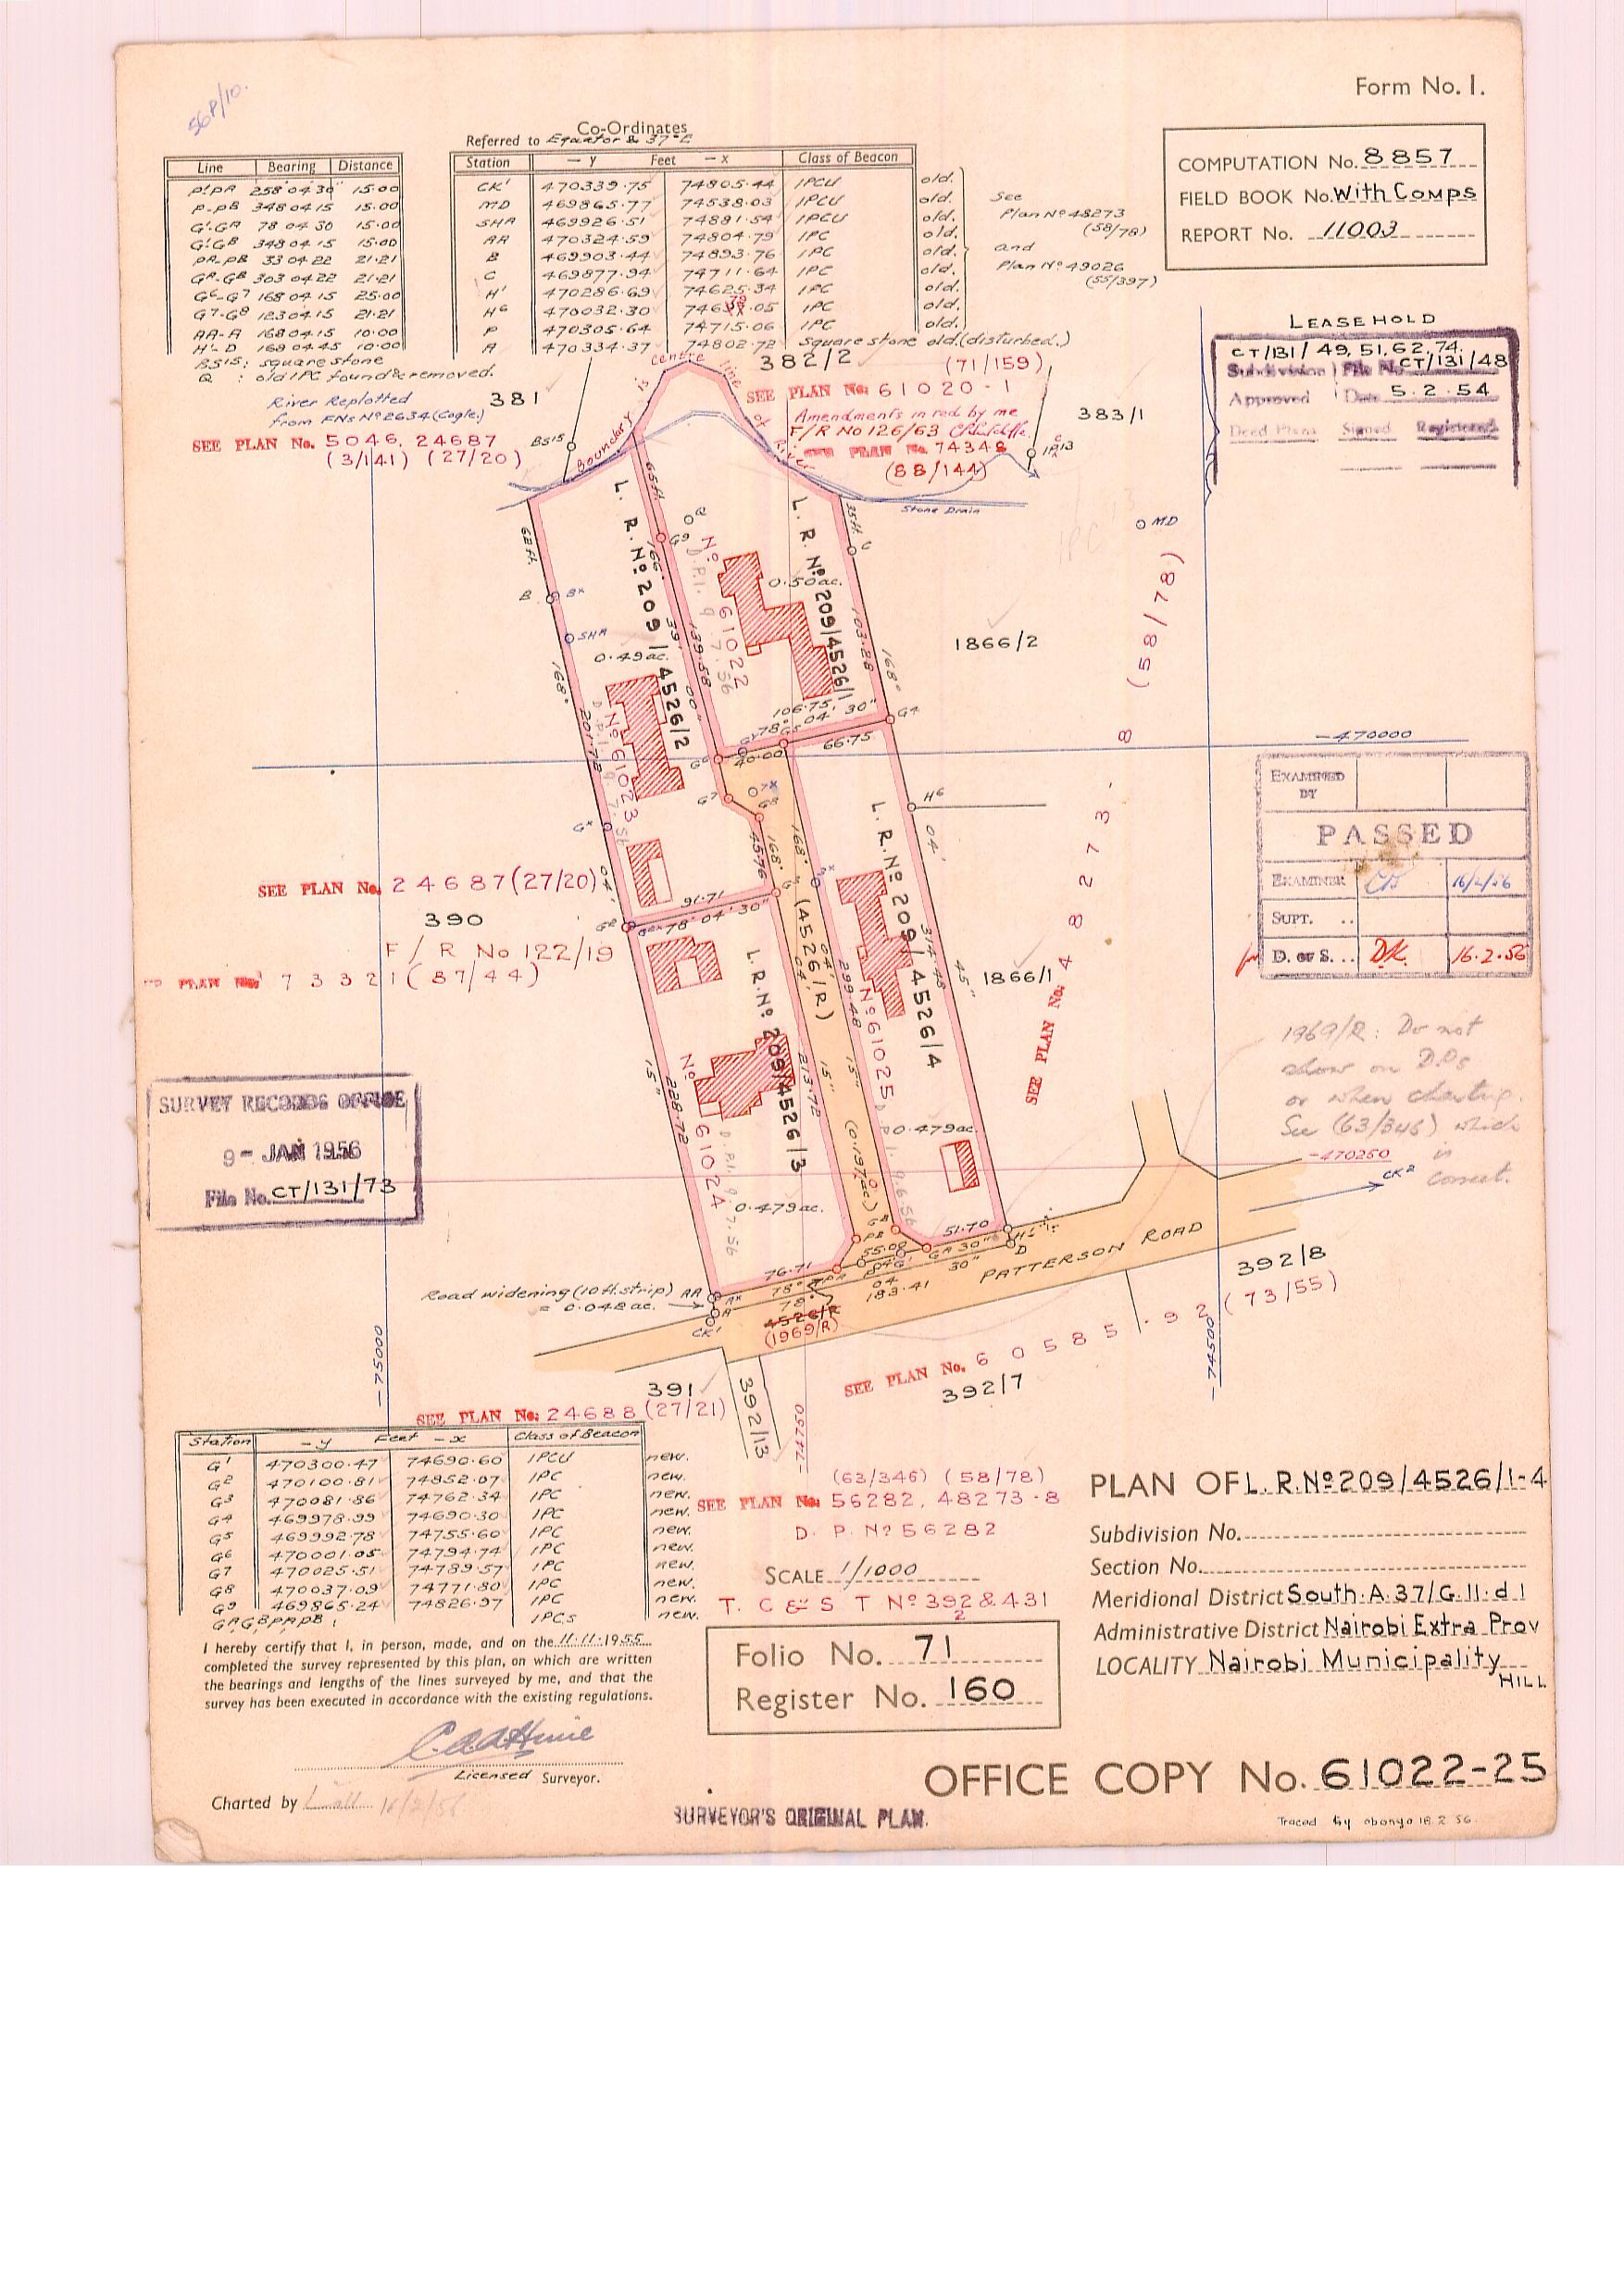 Form No. 1.
56P/10.
Co-Ordinates
Referred to Equator & 37°E
Line Bearing Distance
P'.PA 258 04 30 15.00
P-PB 348 04 15 15.00
G'.GA 78 04 30 15.00
G'.GB 348 04 15 15.00
PA-PB 33 04 22 21.21
GA-GB 303 04 22 21.21
G6-G7 168 04 15 25.00
G7-G8 123 04 15 21.21
AA-A 168 04 15 10.00
H'-D 168 04 45 10.00
BS15: square stone
Q : old IPC found & removed.
Station - y Feet - x Class of Beacon
CK' 470339.75 74805.44 IPCU old.
MD 469865.77 74538.03 IPCU old.
SHA 469926.51 74881.54 IPCU old.
AA 470324.59 74804.79 IPC old.
B 469903.44 74893.76 IPC old.
C 469877.94 74711.64 IPC old.
H' 470286.69 74625.34 IPC old.
H6 470032.30 IPC old.
P 470305.64 74715.06 IPC old.
A 470334.37 74802.72 Square stone old.(disturbed.)
See
Plan Nº 48273
(58/78)
and
Plan Nº 49026
(55/397)
COMPUTATION No. 8857
FIELD BOOK No. With Comps
REPORT No. 11003
LEASEHOLD
CT/131/ 49, 51, 62, 74.
Subdivision File No. CT/131/48
Approved Date 5.2.54
Deed Plans Signed Registered
River Replotted
from FNs Nº 2634 (Cogle.)
381
382/2
(71/159)
SEE PLAN No: 61020-1
Amendments in red by me
F/R No 126/63
SEE PLAN No. 74348
(88/144)
383/1
SEE PLAN No. 5046, 24687
(3/141) (27/20)
BS15
Boundary is centre line of River
Stone Drain
MD
L. R. Nº 209/4526/2
L. R. Nº 209/4526/1
Nº 61022
0.50ac.
0.49ac.
1866/2
SEE PLAN No: 48273-8 (58/78)
62ft.
65ft.
35ft.
B
SHA
168°
201.72
139.58
103.28
106.75
78° 04' 30"
66.75
40.00
G4
H6
-470000
Nº 61023
45.76
91.71
78° 04' 30"
SEE PLAN No. 24687 (27/20)
390
F / R No 122/19
PLAN No. 73321 (87/44)
L. R. Nº 209/4526/4
(4526/R)
314.48
299.48
Nº 61025
1866/1
L. R. Nº 209/4526/3
Nº 61024
228.72
213.72
(0.197ac.)
0.479ac.
0.479ac.
EXAMINED BY
PASSED
EXAMINER 16/2/56
SUPT. ..
D. of S. .. DK. 16.2.56
1969/R: Do not
show on D.Ps
or when charting.
See (63/346) which
is
correct.
-470250
CK2
SURVEY RECORDS OFFICE
9 - JAN 1956
File No. CT/131/73
51.70
55.00
76.71
183.41
PATTERSON ROAD
Road widening (10ft. strip) AA
= 0.042ac.
4526/R
(1969/R)
CK'
392/8
SEE PLAN No. 60585.92 (73/55)
392/7
-75000
-74500
-74750
391
392/13
SEE PLAN No: 24688 (27/21)
Station - y Feet - x Class of Beacon
G1 470300.47 74690.60 IPCU new.
G2 470100.81 74852.07 IPC new.
G3 470081.86 74762.34 IPC new.
G4 469978.99 74690.30 IPC new.
G5 469992.78 74755.60 IPC new.
G6 470001.05 74794.74 IPC new.
G7 470025.51 74789.57 IPC new.
G8 470037.09 74771.80 IPC new.
G9 469865.24 74826.97 IPC new.
GA GB PA PB IPCS new.
(63/346) (58/78)
SEE PLAN No: 56282, 48273-8
D. P. Nº 56282
SCALE 1/1000
T. C & S T Nº 392 & 431
2
PLAN OF L.R.Nº 209/4526/1-4
Subdivision No.
Section No.
Meridional District South.A.37/G.11.d.1
Administrative District Nairobi Extra Prov
LOCALITY Nairobi Municipality
HILL
I hereby certify that I, in person, made, and on the 11.11.1955
completed the survey represented by this plan, on which are written
the bearings and lengths of the lines surveyed by me, and that the
survey has been executed in accordance with the existing regulations.
Licensed Surveyor.
Charted by 16/2/56
Folio No. 71
Register No. 160
OFFICE COPY No. 61022-25
SURVEYOR'S ORIGINAL PLAN.
Traced by obonyo 18.2.56